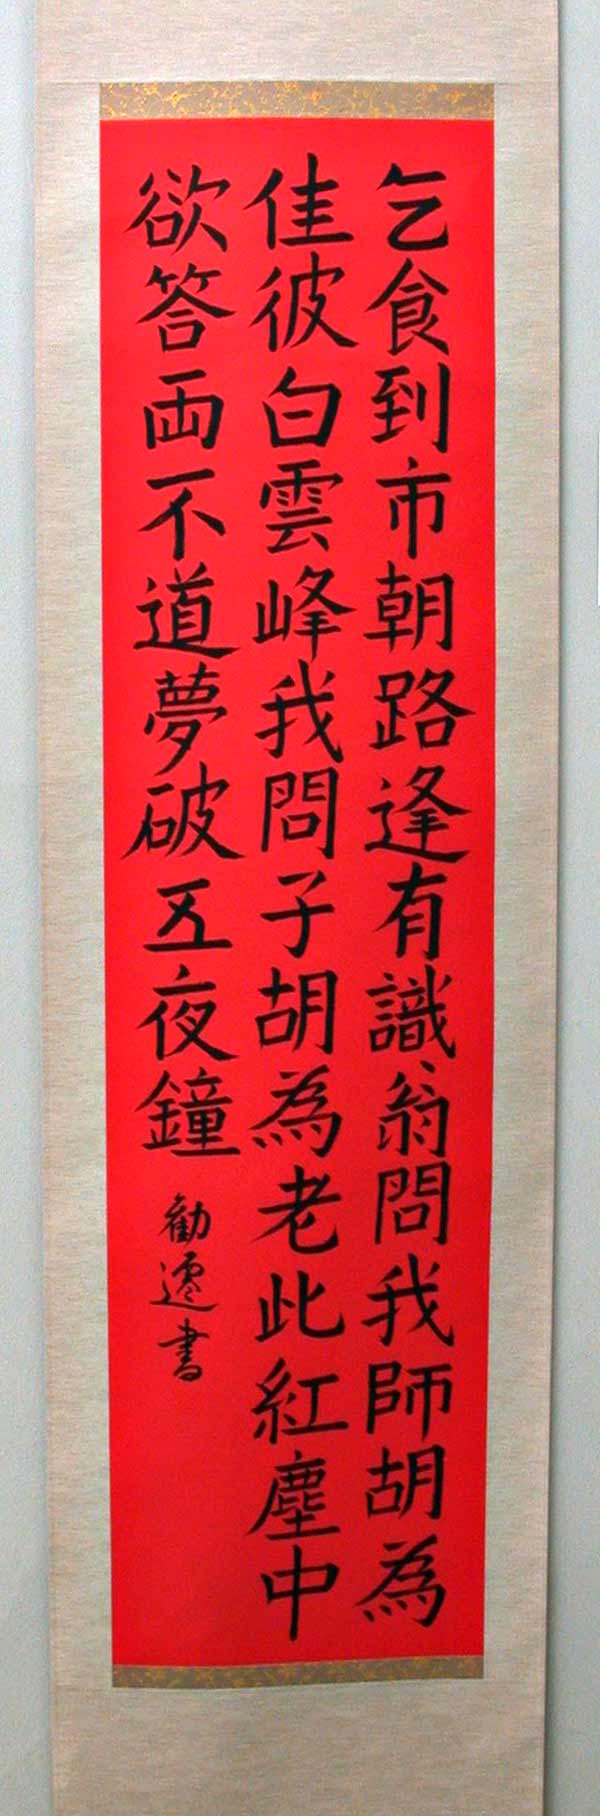 乞食到市朝路逢有識翁問我師胡為
住彼白雲峰我問子胡為老此紅塵中
欲答両不道夢破五夜鐘
勧遷書